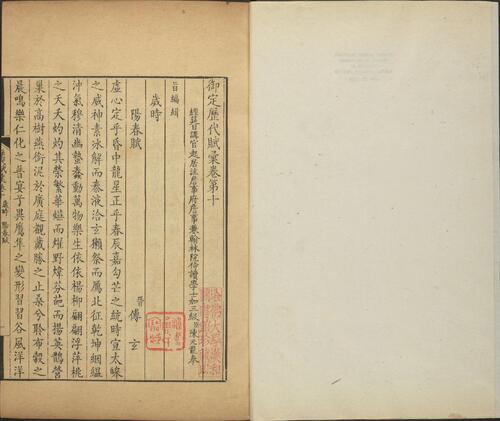 御定歷代賦彙卷第十
經筵日講官起居注詹事府詹事兼翰林院侍讀學士加三級臣陳元龍奉
旨編輯
歲時
陽春賦 晉 傅玄
虛心定乎昏中龍星正乎春辰嘉勾芒之統時宣太皞
之威神素冰解而泰液洽玄獺祭而鴈北征乾坤絪縕
沖氣穆清幽蟄蠢動萬物樂生依依楊柳翩翩浮萍桃
之夭夭灼灼其榮繁華爗而燿野煒芬葩而揚英鵲營
巢於高樹燕銜泥於廣庭覩戴勝之止桑兮聆布穀之
晨鳴樂仁化之普宴兮異鷹隼之變形習習谷風洋洋